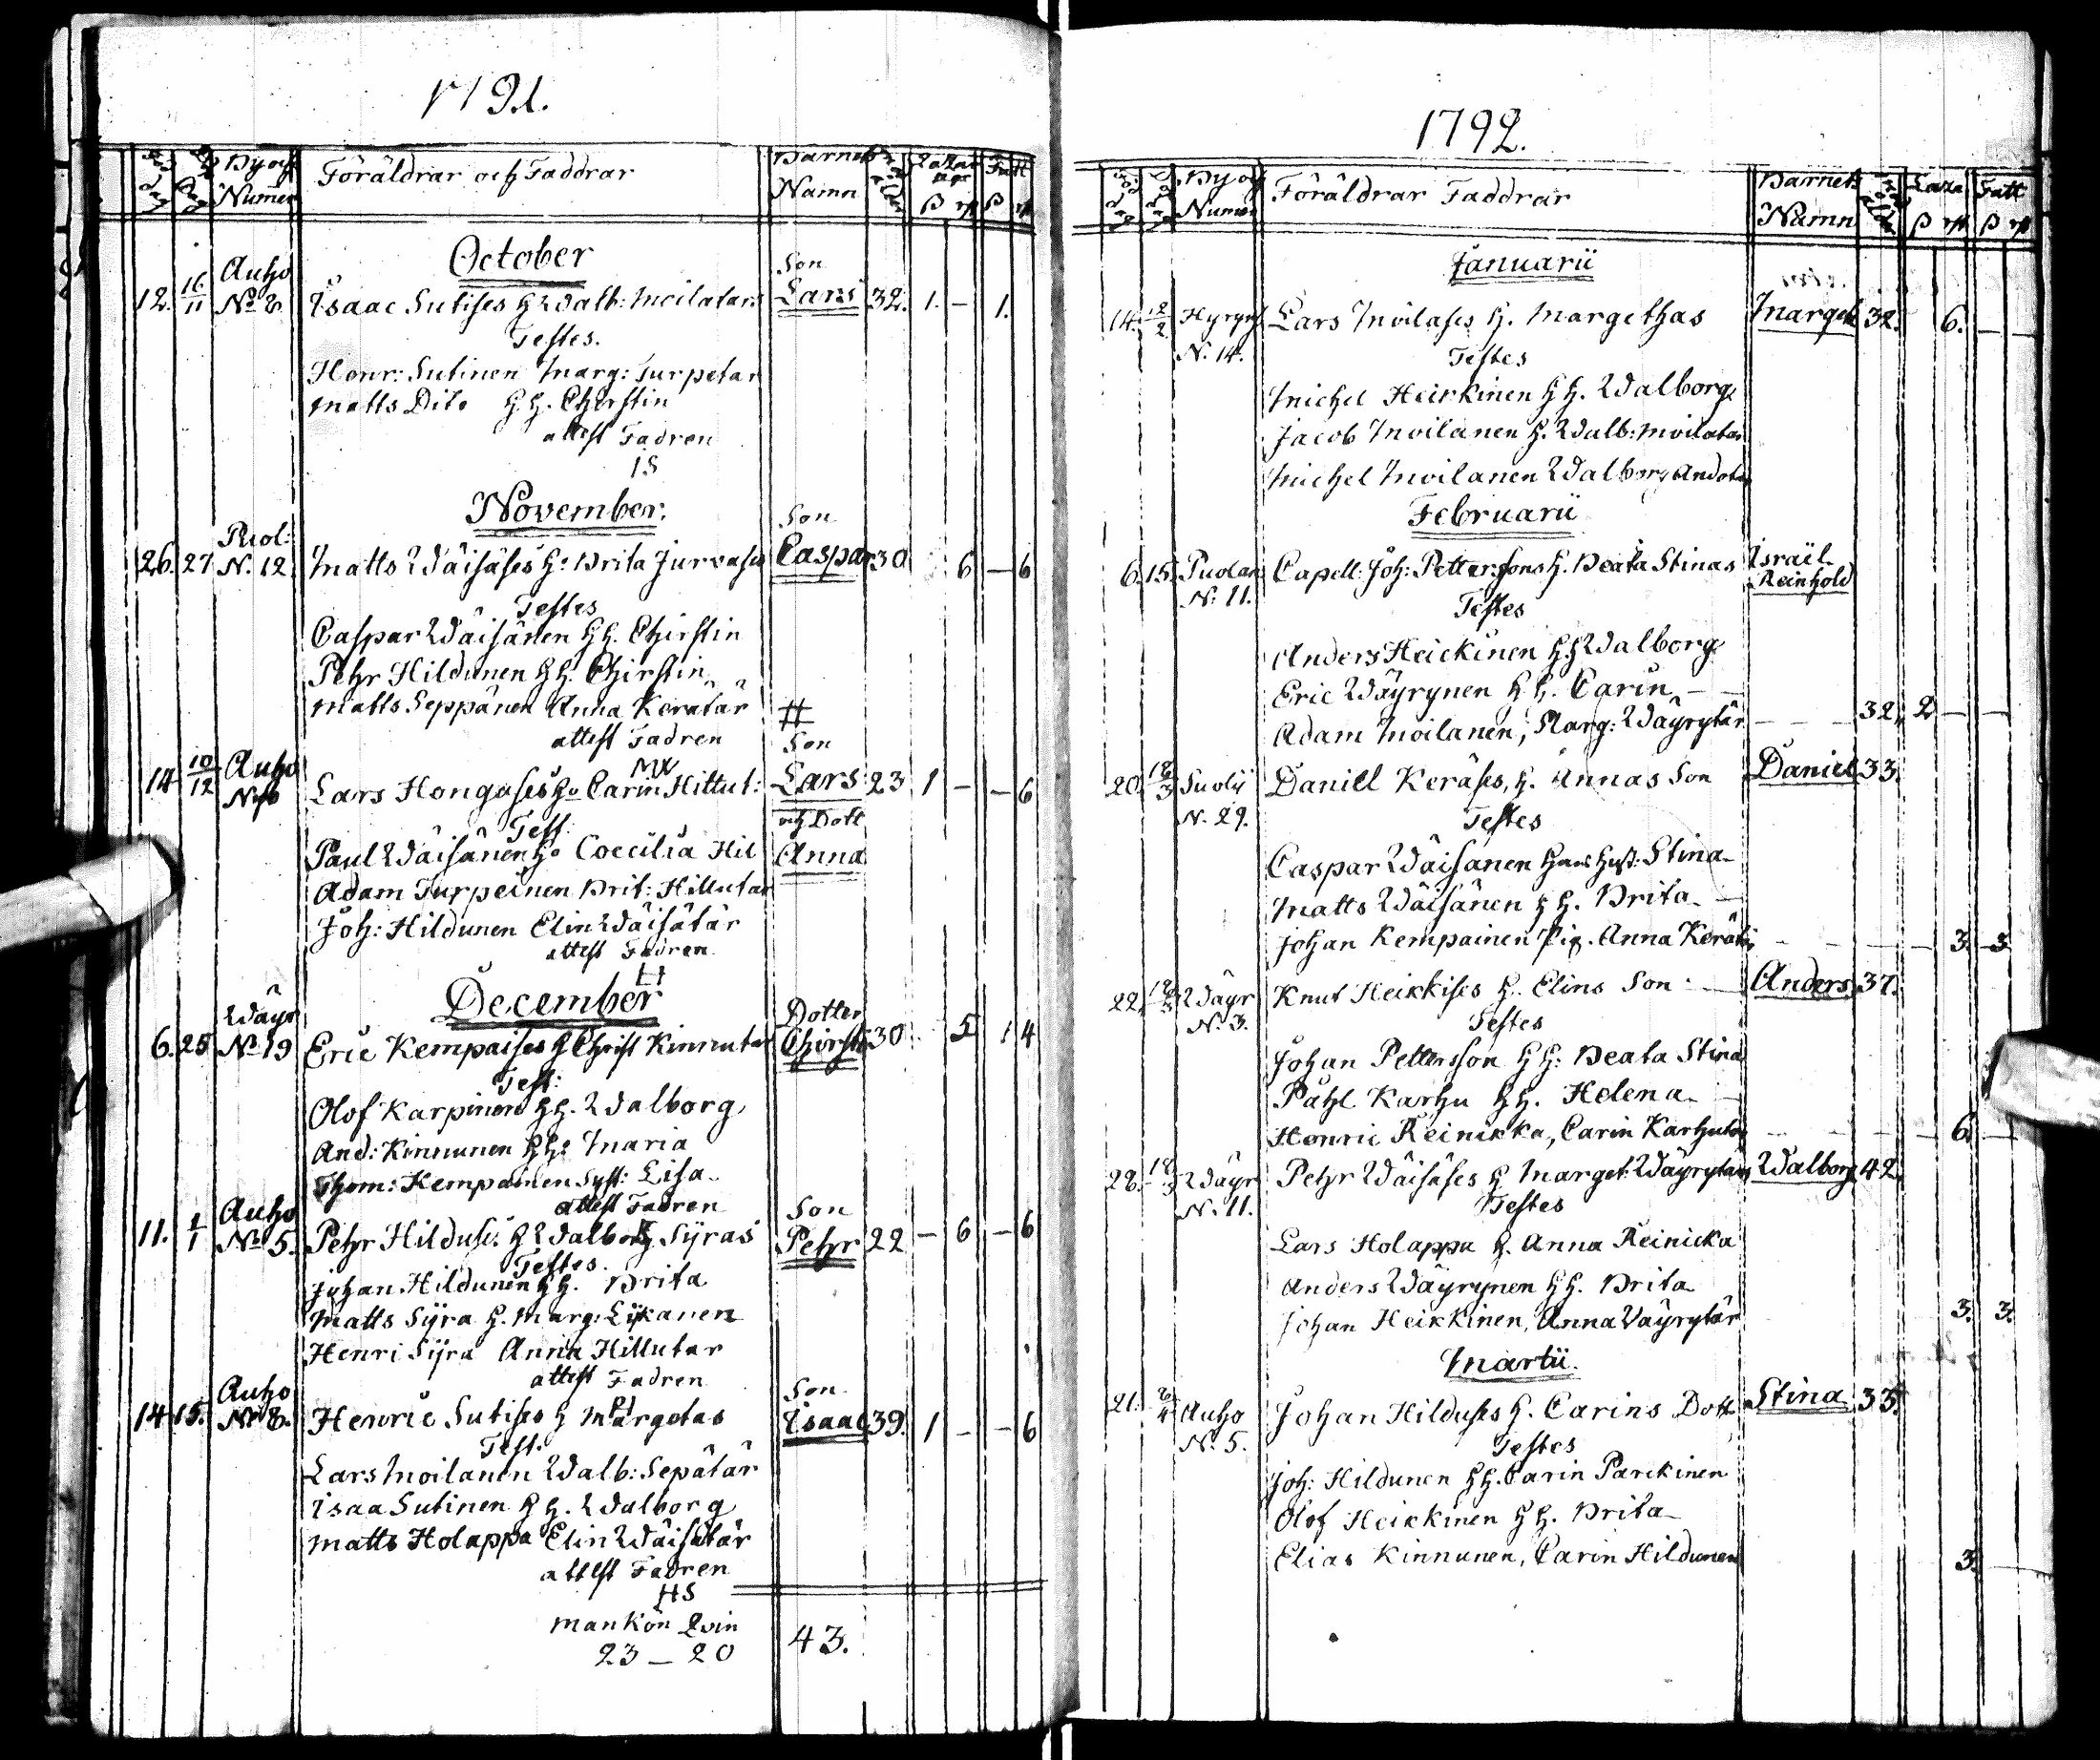 1791.
Byoch Numer Föräldrar och Faddrar Barnets Namn Fatt
October
12. 16/11 Auho No 8. Isaac Sutises h Walb: Moilatars Son Lars 32. 1. – 1.
Testes.
Henr: Sutinen Marg: Turpetar
Matts Dito h h. Chirstin
attest Fadren
IS
November.
26. 27 Puol: N. 12 Matts Wäisäses h: Brita Jurvases Son Caspar 30 6 – 6
Testes
Caspar Wäisänen h h. Chirstin
Pehr Hildunen h h. Chirstin
Matts Seppänen Anna Kerätär
attest Fadren
14 10/12 Auho Lars Hongases h. Carin Hittut: Son Lars 23 1 – – 6
och Dott Anna
Test:
Paul Wäisänen h. Coecilia Hil
Adam Turpeinen Brit: Hillutar
Joh: Hildunen Elin Wäisätär
attest Fadren
LH
December
6. 25 Wäyr No 19 Eric Kempaises h Christ Kinnutar Dotter Chirstin 30 5 1 4
Test:
Olof Karpinen h h. Walborg
And: Kinnunen h h: Maria
Thom: Kempainen Syst: Lisa
attest Fadren
11. 1/1 Auho No 5. Pehr Hilduses h Walborg Syras Son Pehr 22 – 6 – 6
Testes.
Johan Hildunen h h. Brita
Matts Syra h. Marg: Lykanen
Henri Syra Anna Hillutar
attest Fadren
14 15. Auho No 8. Henric Sutises h Margetas Son Isaac 39. 1 – – 6
Test.
Lars Moilanen Walb: Sepätär
Isaa Sutinen h h. Walborg
Matts Holappa Elin Wäisätär
attest Fadren
HS
Mankön Qvin
23 – 20 43.
1792.
Byoch Numer Föräldrar Faddrar Barnets Namn Fatt
Januarii
14. 12/2 Hyryns N. 14. Lars Moilases h. Margethas Marget 32. 6. –
Testes
Michel Heikkinen h h. Walborg
Jacob Moilanen h. Walb: Moilatar
Michel Moilanen Walborg
Februarii
6. 15. Puolan N. 11. Capell: Joh: Petterssons h. Beata Stinas Israël Reinhold
Testes
Anders Heickinen h h Walborg
Eric Wäyrynen h h. Carin
Adam Moilanen, Marg: Wäyrytär 32. 2 – –
20. 18/3 Suolij N. 29. Daniel Keräses, h. Annas Son Daniel 33.
Testes
Caspar Wäisänen hans hust: Stina
Matts Wäisänen h h. Brita
Johan Kempainen Pig. Anna Kerätär 3. 3
22. 18/3 Wäyr N. 3. Knut Heikkises h. Elins Son Anders 37.
Testes
Johan Pettersson h h: Beata Stina
Påhl Karhu h h. Helena
Henric Reinikka, Carin Karhutar 6. –
28. 18/3 Wäyr N. 11. Pehr Wäisäses h Marget: Wäyrytärs Walborg 42
Testes
Lars Holappa h. Anna Reinicka
Anders Wäyrynen h h. Brita
Johan Heikkinen, Anna Väyrytär 3. 3.
Martii.
21. 8/4 Auho N. 5. Johan Hilduses h. Carins Dott Stina 35.
Testes
Joh: Hildunen h h. Carin Parckinen
Olof Heikkinen h h. Brita
Elias Kinnunen, Carin Hildunen 3.